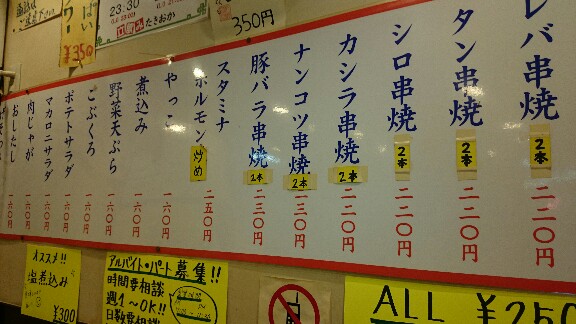 23:30
たきおか
¥350
350円
レバ串焼 2本 二二〇円
タン串焼 2本 二二〇円
シロ串焼 2本 二二〇円
カシラ串焼 2本 二二〇円
ナンコツ串焼 2本 二三〇円
豚バラ串焼 2本 二三〇円
スタミナ
ホルモン炒め 二五〇円
やっこ 一六〇円
煮込み 一六〇円
野菜天ぷら 一六〇円
こぶくろ 一六〇円
ポテトサラダ 一六〇円
マカロニサラダ 一六〇円
肉じゃが 一六〇円
おしたし 一六〇円
オススメ!!
塩煮込み
¥300
アルバイト・パート募集!!
時間要相談
週1〜OK!!
日数要相談
ALL ¥250